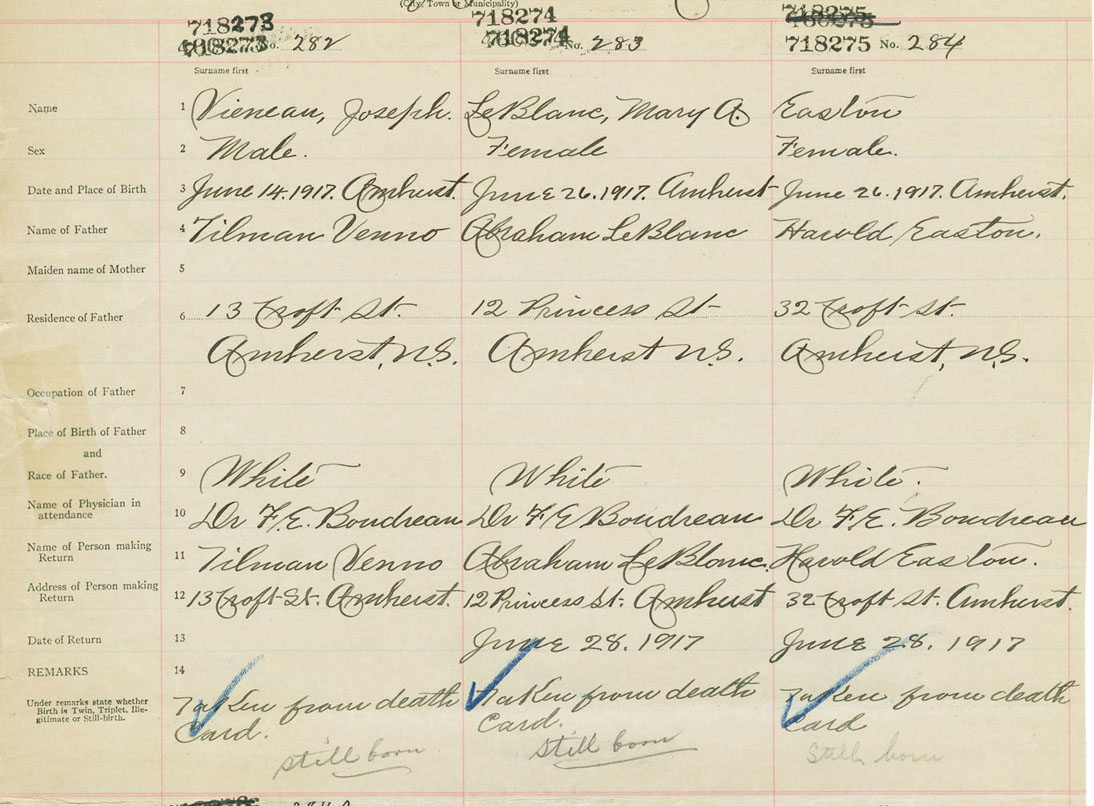 (City, Town or Municipality)
718273 718274 718275
718273 No. 282 718274 No. 283 718275 No. 284
Surname first Surname first Surname first
Name 1 Vieneau, Joseph. LeBlanc, Mary A. Easton
Sex 2 Male. Female Female.
Date and Place of Birth 3 June 14. 1917. Amherst. June 26. 1917. Amherst June 26. 1917. Amherst.
Name of Father 4 Tilman Venno Abraham LeBlanc Harold Easton.
Maiden name of Mother 5
Residence of Father 6 13 Croft St. 12 Princess St 32 Croft St.
Amherst, N.S. Amherst N.S. Amherst, N.S.
Occupation of Father 7
Place of Birth of Father 8
and
Race of Father. 9 White White White.
Name of Physician in
attendance 10 Dr F.E. Boudreau Dr F E Boudreau Dr F.E. Boudreau
Name of Person making
Return 11 Tilman Venno Abraham LeBlanc. Harold Easton.
Address of Person making
Return 12 13 Croft St. Amherst. 12 Princess St. Amherst 32 Croft St. Amherst.
Date of Return 13 June 28. 1917 June 28. 1917
REMARKS 14
Under remarks state whether
Birth is Twin, Triplet, Ille-
gitimate or Still-birth.
Taken from death Taken from death Taken from death
Card. Card. Card
still born still born Still born